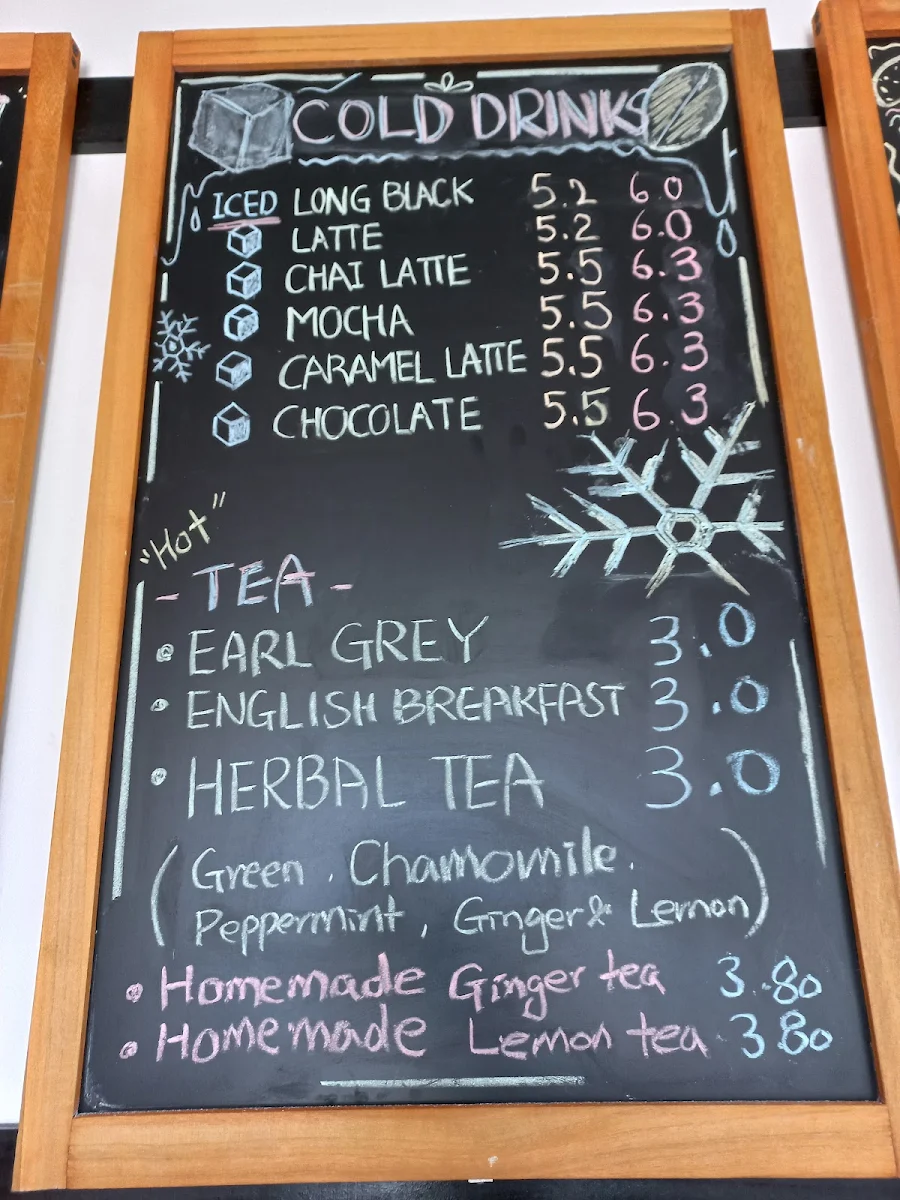 COLD DRINKS
ICED LONG BLACK 5.2 6.0
LATTE 5.2 6.0
CHAI LATTE 5.5 6.3
MOCHA 5.5 6.3
CARAMEL LATTE 5.5 6.3
CHOCOLATE 5.5 6.3
"Hot"
- TEA -
• EARL GREY 3.0
• ENGLISH BREAKFAST 3.0
• HERBAL TEA 3.0
(Green . Chamomile .
Peppermint , Ginger & Lemon)
• Homemade Ginger tea 3.80
• Homemade Lemon tea 3.80